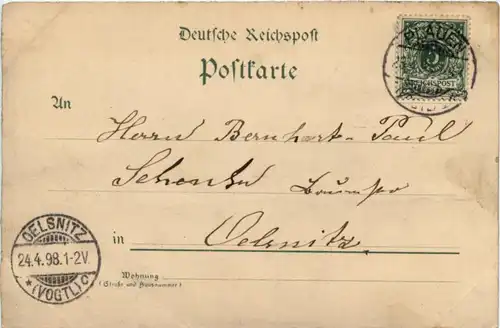 Deutsche Reichspost
Postkarte
PLAUEN
5
REICHSPOST
An
Herrn Bernhart Paul
in Oelsnitz
OELSNITZ
24.4.98.1-2V.
*(VOGTL) C
Wohnung
(Straße und Hausnummer)